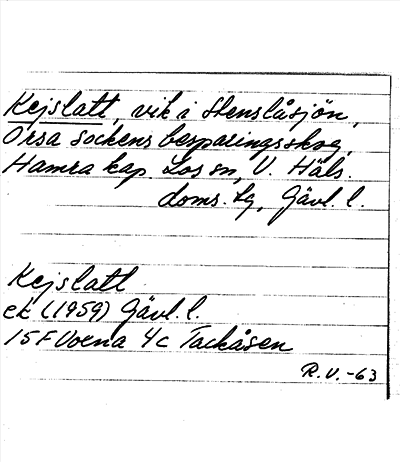 Kejslatt, vik i Stenslåsjön,
Orsa sockens besparingsskog,
Hamra kap. Los sn, V. Häls.
doms. lg, Gävl. l.
Kejslatt
ek (1959) Gävl. l.
15F Voxna 4c Tackåsen
R.V.-63